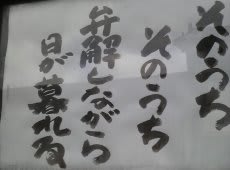 そのうち
そのうち
弁解しながら
日が暮れる